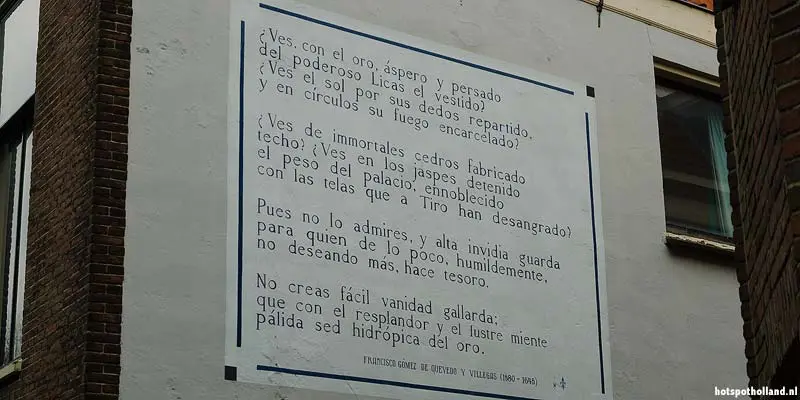 ¿Ves, con el oro, áspero y pesado
del poderoso Licas el vestido?
¿Ves el sol por sus dedos repartido,
y en círculos su fuego encarcelado?
¿Ves de inmortales cedros fabricado
techo? ¿Ves en los jaspes detenido
el peso del palacio, ennoblecido
con las telas que a Tiro han desangrado?
Pues no lo admires, y alta invidia guarda
para quien de lo poco, humildemente,
no deseando más, hace tesoro.
No creas fácil vanidad gallarda;
que con el resplandor y el lustre miente
pálida sed hidrópica del oro.
FRANCISCO GÓMEZ DE QUEVEDO Y VILLEGAS (1580 - 1645)
hotspotholland.nl